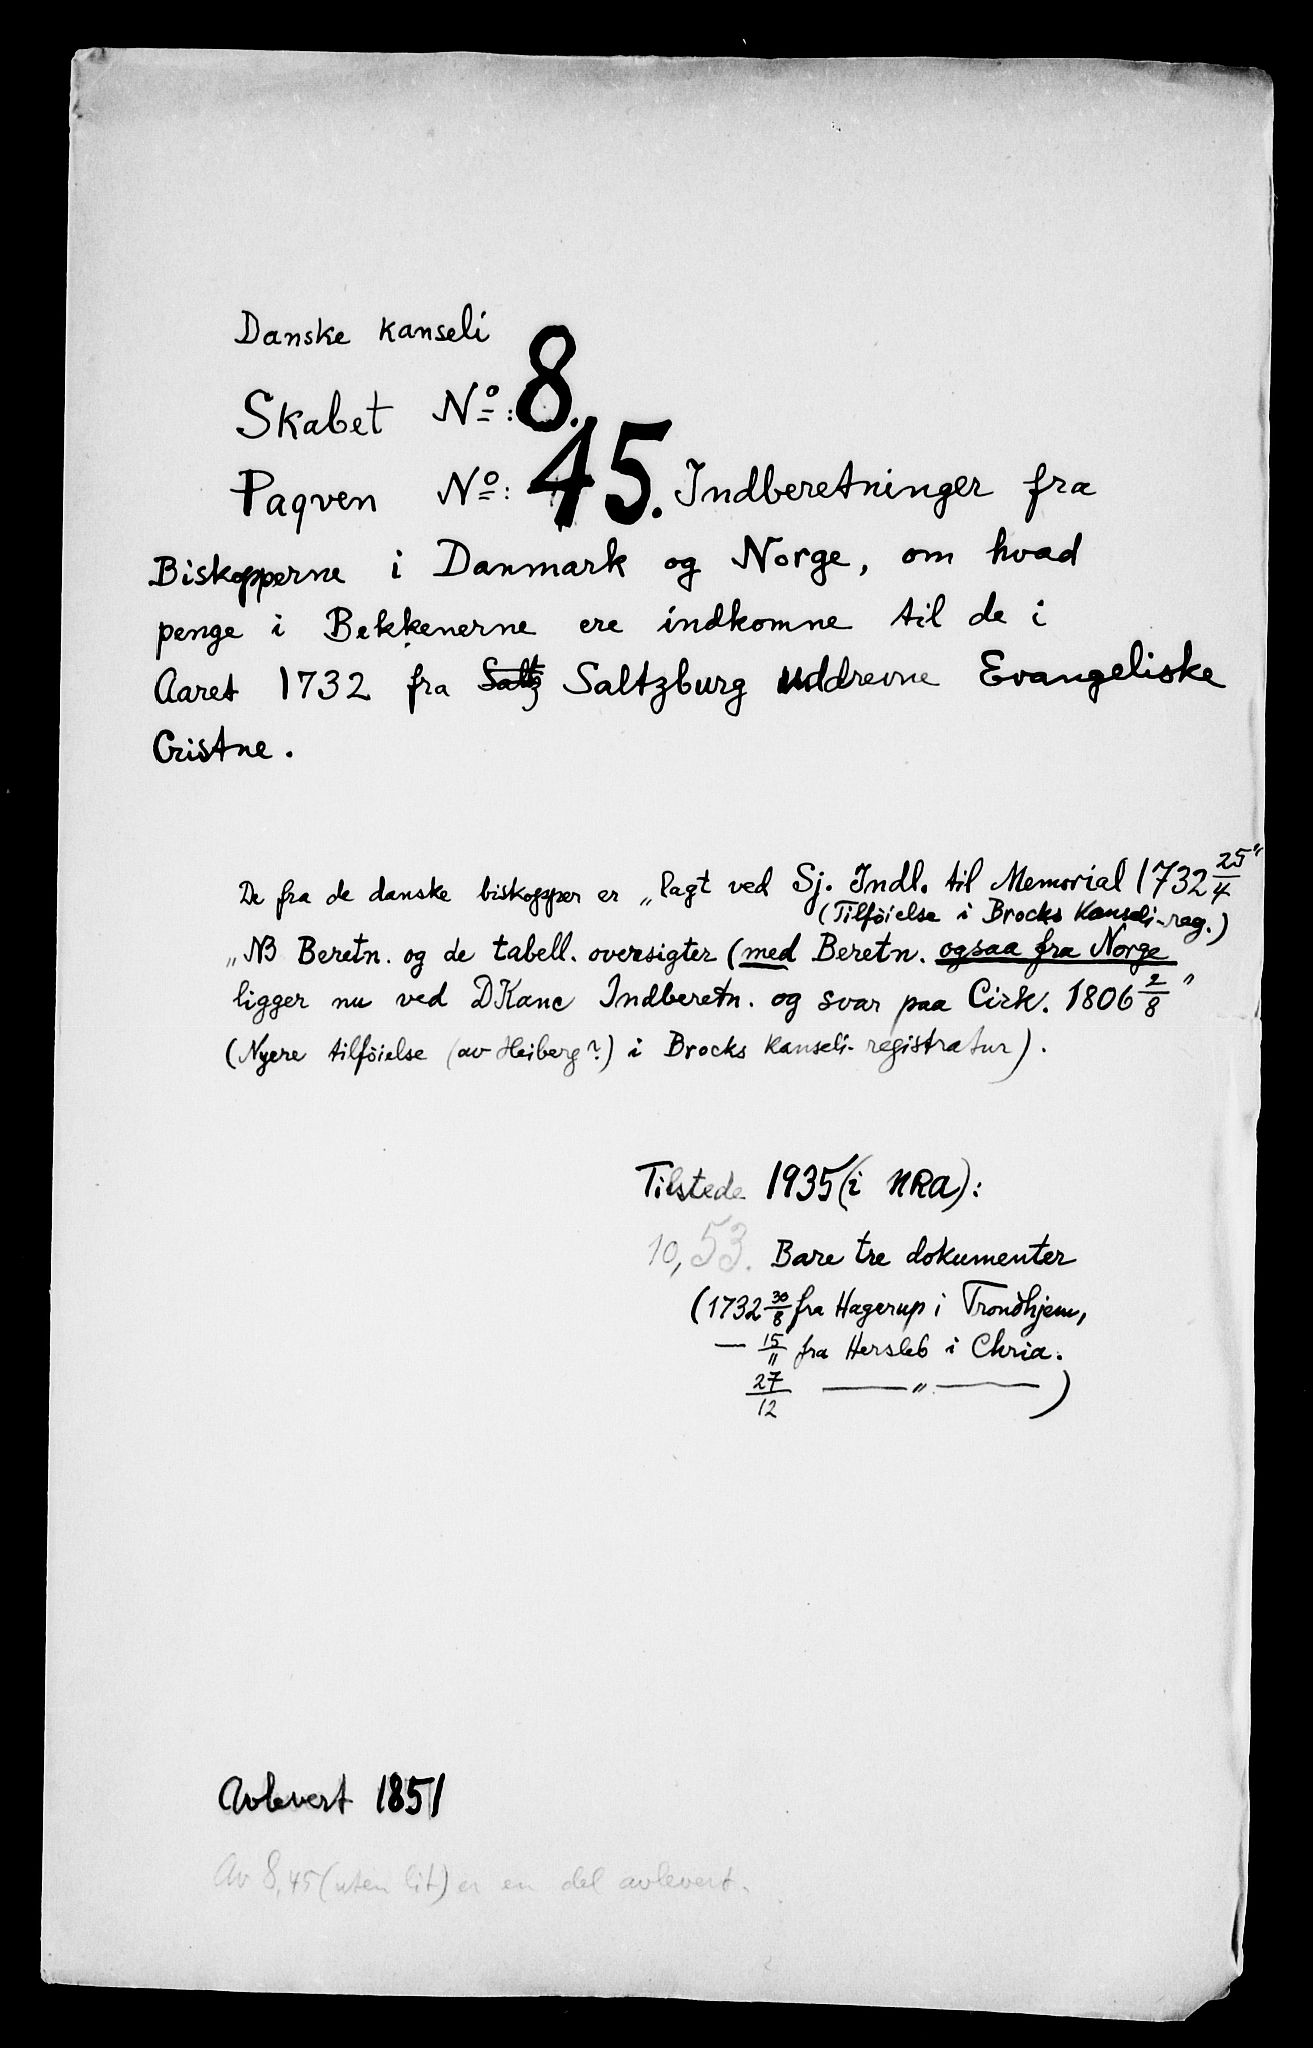 Danske kanseli
Skabet No: 8.
Paqven No: 45. Indberetninger fra
Biskopperne i Danmark og Norge, om hvad
penge i Bekkenerne ere indkomne til de i
Aaret 1732 fra Saltz Saltzburg uddrevne Evangeliske
Cristne.
De fra de danske biskopper er „lagt ved Sj. Indl. til Memorial 1732 25/4"
(Tilföielse i Brocks Kanseli-reg.)
„NB Beretn. og de tabell. oversigter (med Beretn. ogsaa fra Norge
ligger nu ved DKanc Indberetn. og svar paa Cirk. 1806 2/8"
(Nyere tilföielse (av Heiberg?) i Brocks Kanseli-registratur).
Tilstede 1935 (i NRA):
10, 53. Bare tre dokumenter
(1732 30/8 fra Hagerup i Trondhjem,
— 15/11 fra Hersleb i Chria.
27/12 — „ — )
Avlevert 1851
Av 8,45 (uten lit) er en del avlevert.